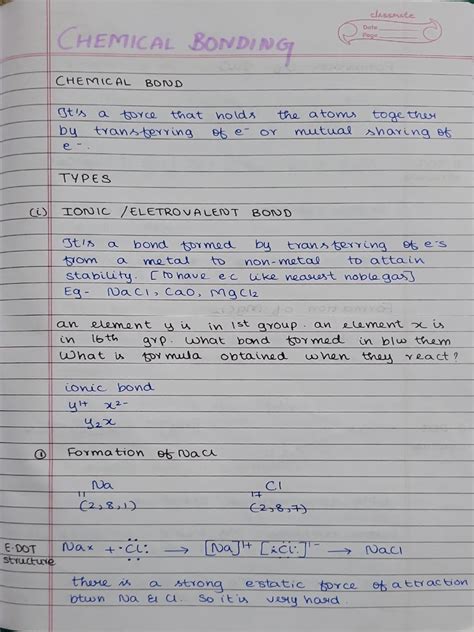 classmate
Date
Page
CHEMICAL BONDING
CHEMICAL BOND
It's a force that holds the atoms together
by transferring of e⁻ or mutual sharing of
e⁻.
TYPES
(i) IONIC / ELETROVALENT BOND
It's a bond formed by transferring of e⁻s
from a metal to non-metal to attain
stability. [To have e c like nearest noble gas]
Eg- NaCl, CaO, MgCl2
an element y is in 1st group. an element x is
in 16th grp. What bond formed in b/w them
What is formula obtained when they react?
ionic bond
y¹⁺ x²⁻
y₂x
① Formation of NaCl
Na Cl
11 17
(2,8,1) (2,8,7)
E·DOT structure Nax + ·Cl: → [Na]¹⁺ [xCl:]¹⁻ → NaCl
there is a strong e·static force of attraction
btwn Na & Cl. So it is very hard.